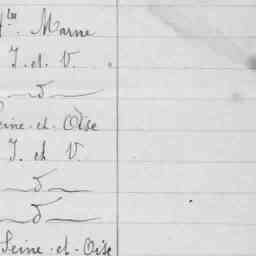 Hte Marne
I. et. V.
d
Seine-et-Oise
I. et V.
d
d
Seine-et-Oise